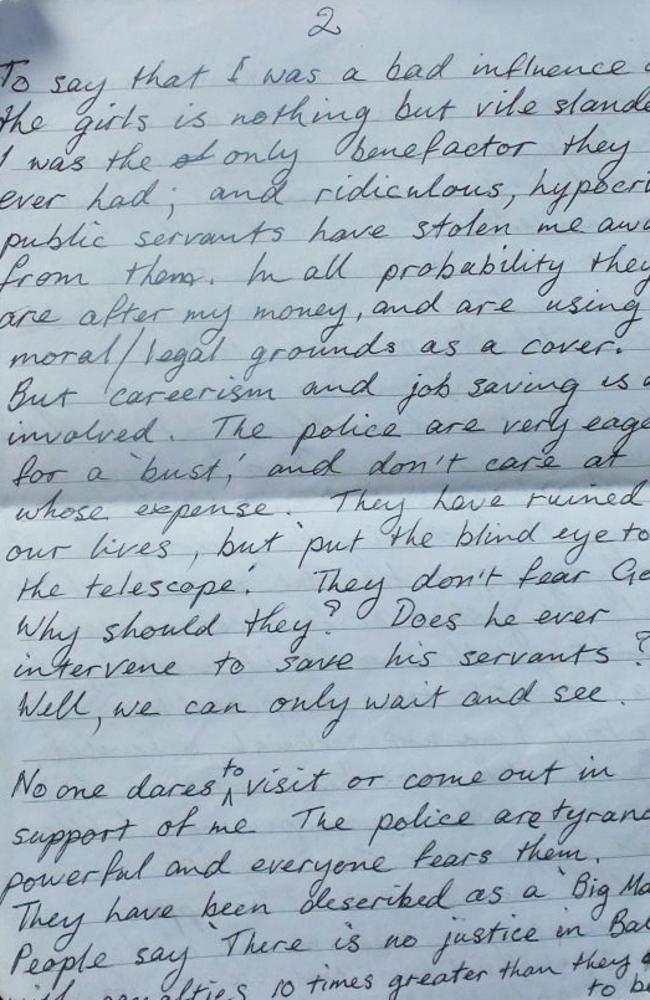 2
To say that I was a bad influence
the girls is nothing but vile slande
I was the only benefactor they
ever had; and ridiculous, hypocri
public servants have stolen me awa
from them. In all probability they
are after my money, and are using
moral/legal grounds as a cover.
But careerism and job saving is
involved. The police are very eage
for a 'bust,' and don't care at
whose expense. They have ruined
our lives, but 'put the blind eye to
the telescope.' They don't fear Go
Why should they? Does he ever
intervene to save his servants?
Well, we can only wait and see.
No one dares to visit or come out in
support of me. The police are tyran
powerful and everyone fears them.
They have been described as a 'Big Ma
People say 'There is no justice in Bal
penalties 10 times greater than they
to be